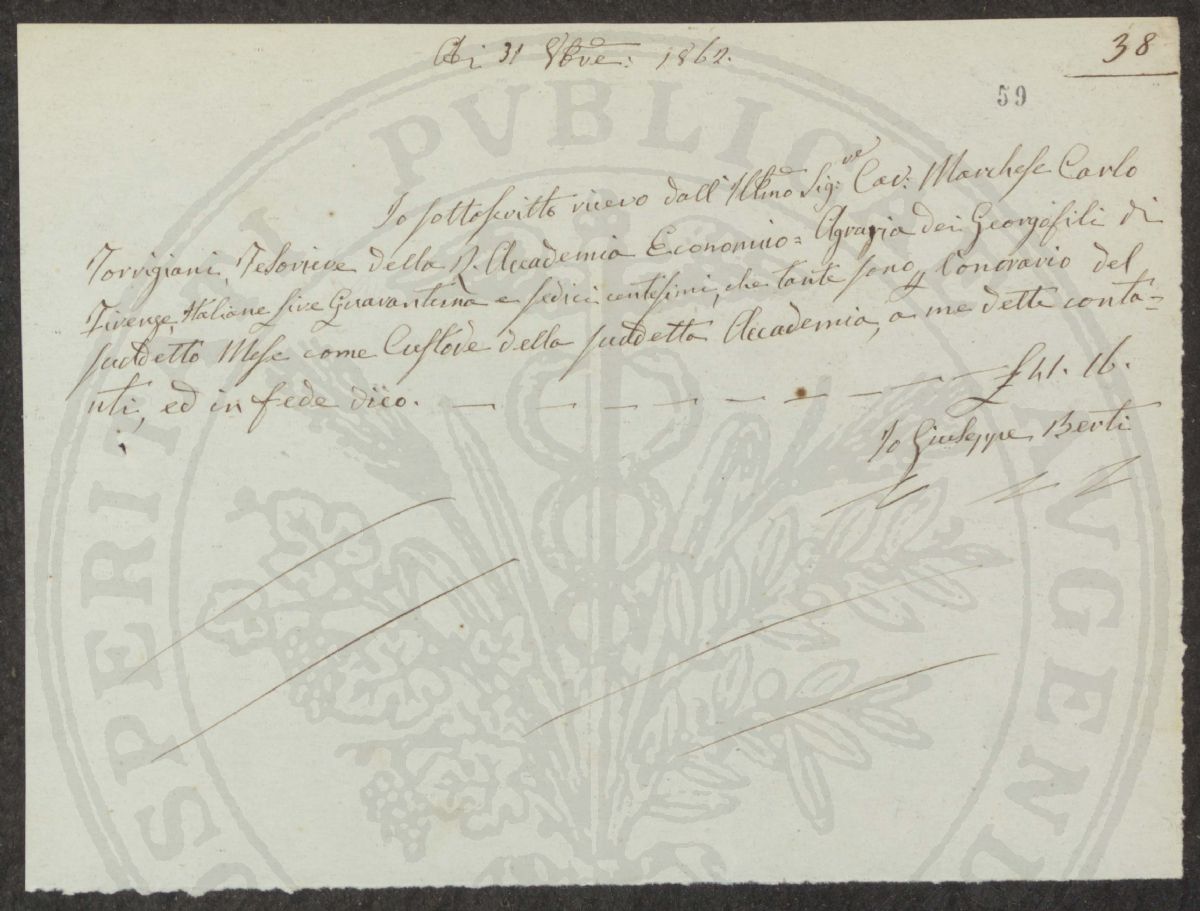 Adi 31 8bre: 1862.
38
59
Io sottoscritto ricevo dall' Illmo Sigre Cav: Marchese Carlo
Torrigiani, Tesoriere della R. Accademia Economico=Agraria dei Georgofili di
Firenze, Italiane Lire Quarantuna e sedici centesimi, che tante sono p Onorario del
suddetto Mese come Custode della suddetta Accademia, a me dette conta-
nti, ed in fede dico. — — — — — — — — £ 41. 16.
Io Giuseppe Berti
PROSPERITATI PUBLICAE AUGENDAE